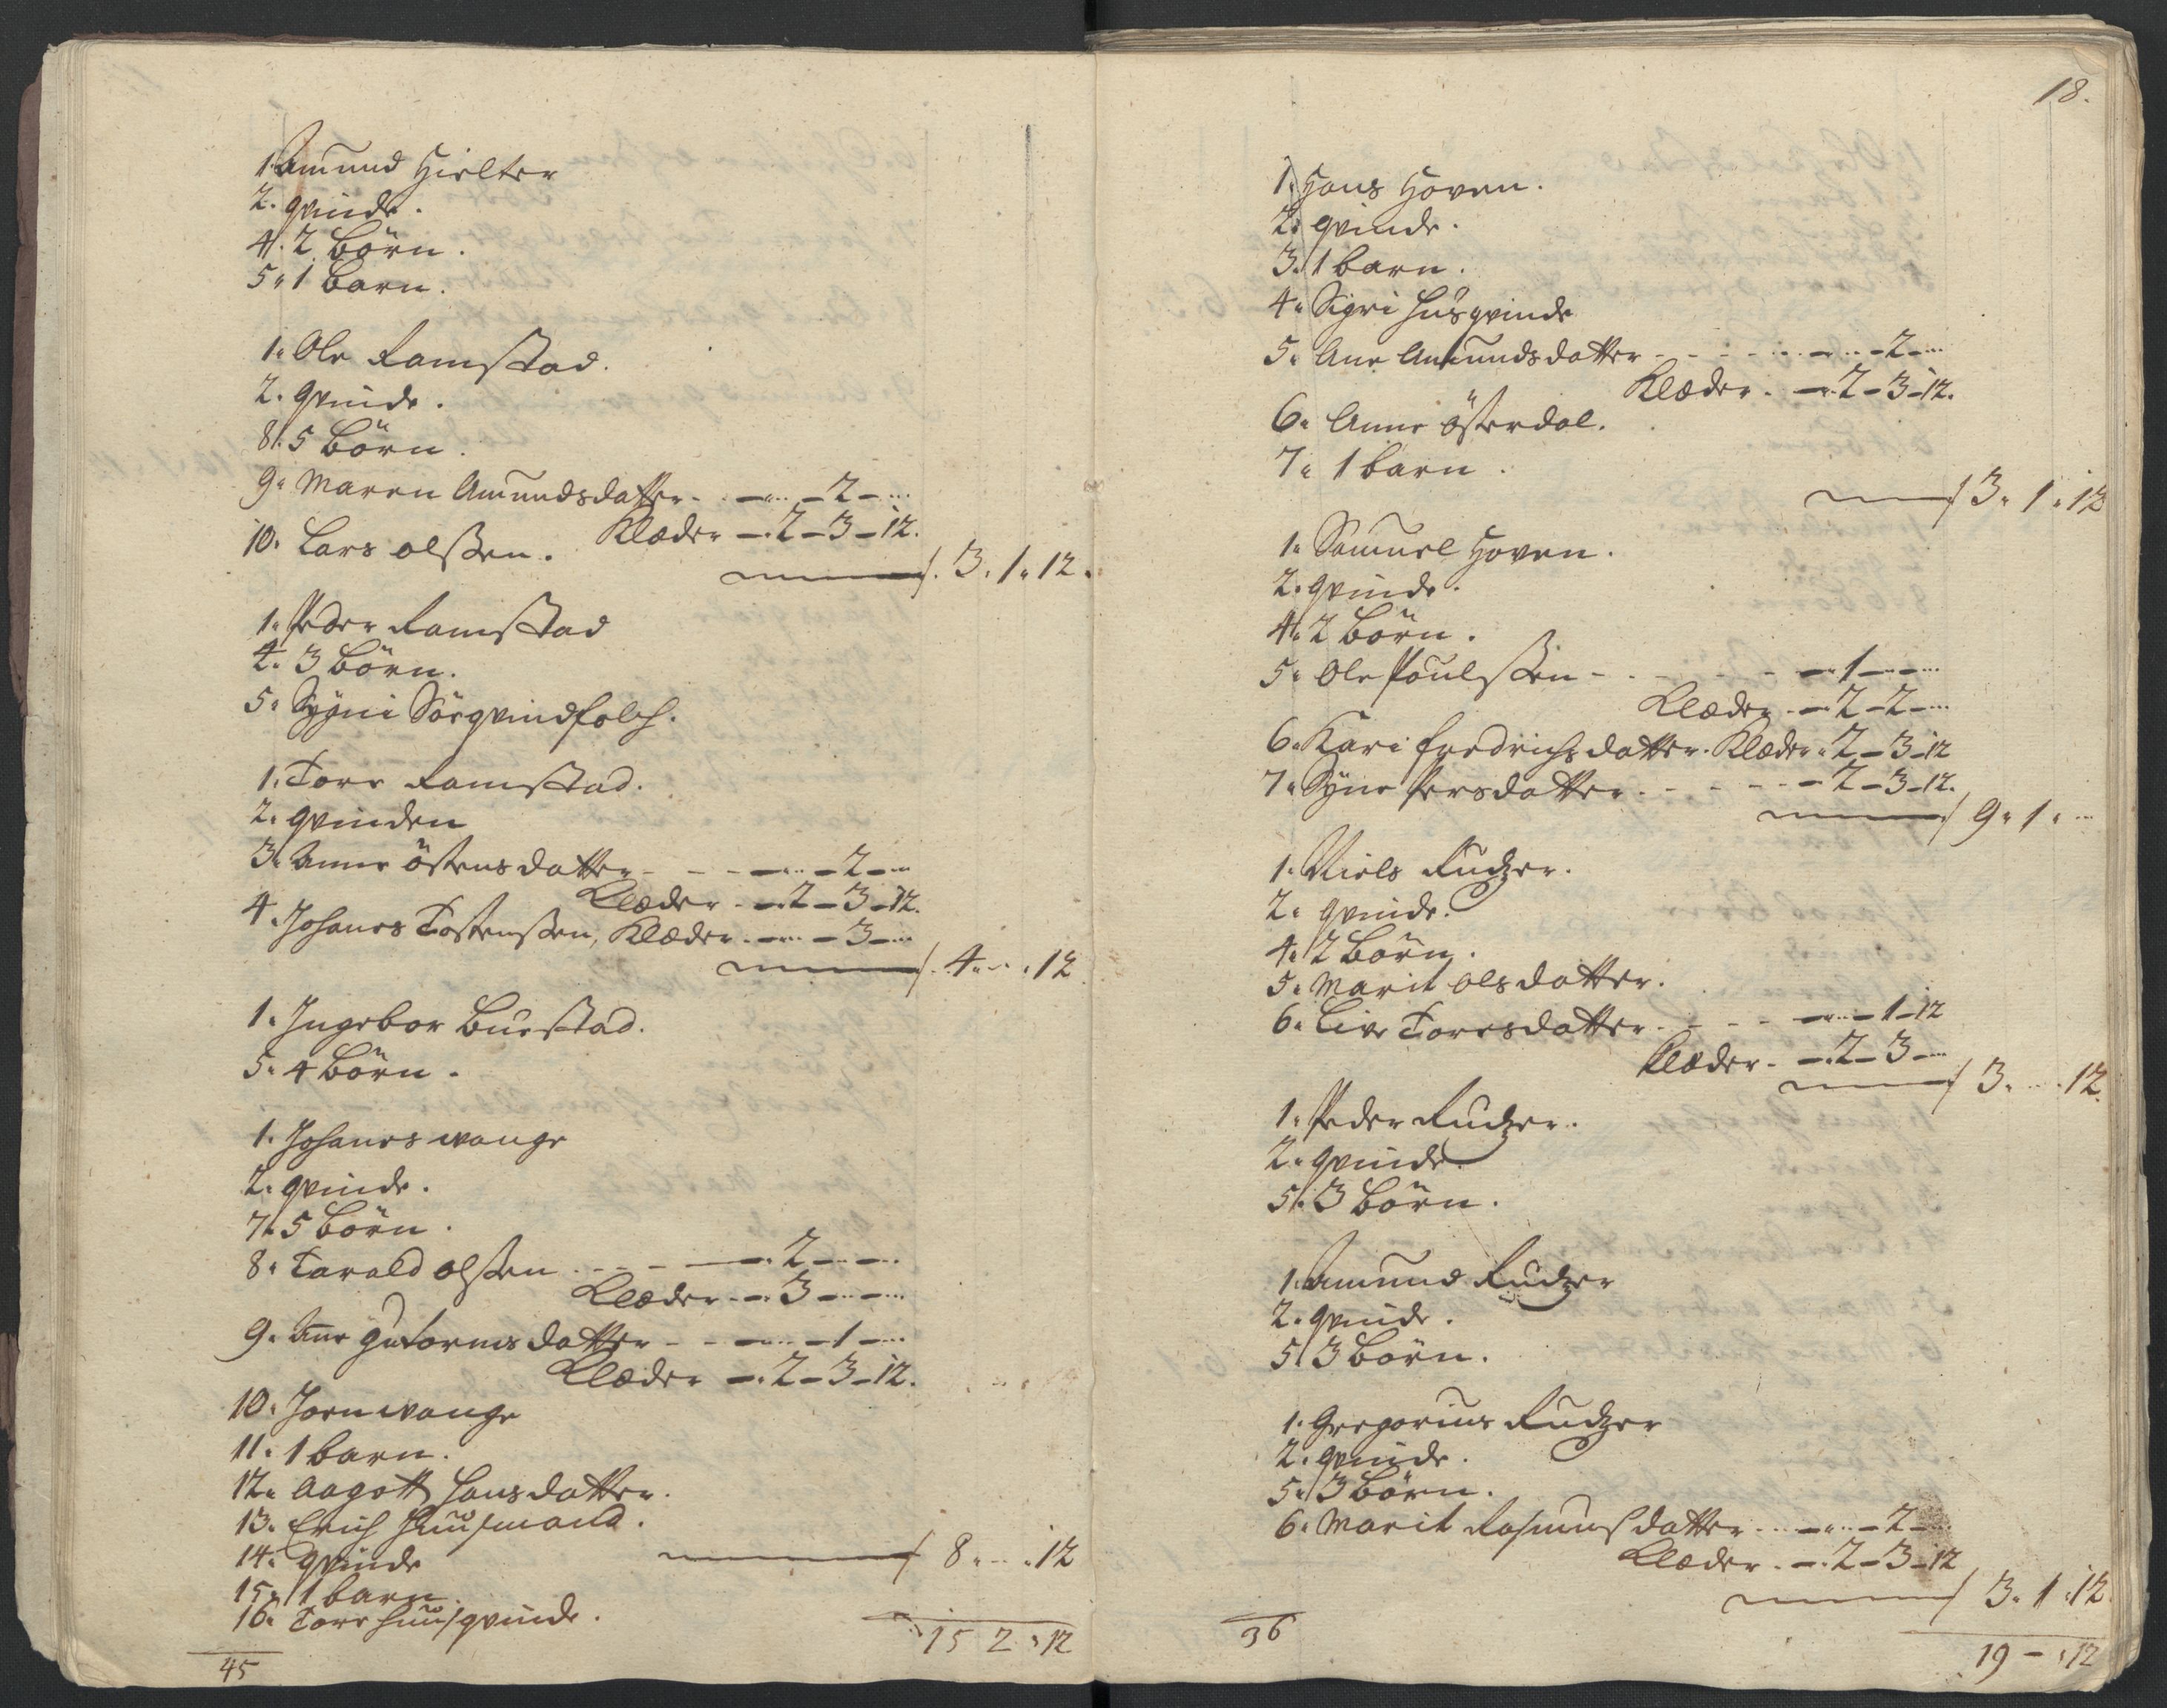 1. Amund Hielter
2. qvinde.
4. 2 börn.
5. 1 barn.
1. Ole Ramstad.
2. qvinde.
8. 5 börn.
9. Maren Amundsdatter - - 2 -
Klæder - 2 - 3 - 12.
10. Lars olssen.
3. 1. 12.
1. Peder Ramstad
4. 3 börn.
5. Sygni Sörqvindfolch.
1. Tore Ramstad.
2. qvinden
3. Anne östensdatter - - 2 -
Klæder - 2 - 3 - 12.
4. Johanes Tostenssen, Klæder - - 3 -
4. - . 12
1. Ingebor Buestad.
5. 4 börn.
1. Johanes wange
2. qvinde.
7. 5 börn.
8. Tarald olssen - - 2 - -
Klæder - 3 - -
9. Ane gutormsdatter - - 1 -
Klæder - 2 - 3 - 12.
10. Joen wange
11. 1 barn.
12. Aagott Hansdatter.
13. Erich Huusmand.
14. qvinde
8. - . 12
15. 1 barn.
16. Tore huusqvinde.
15 2 . 12
45
18.
1. Hans Hoven.
2. qvinde.
3. 1 barn.
4. Sigri Husqvinde
5. Ane Amundsdatter - - 2 -
Klæder - 2 - 3 - 12.
6. Anne österdal.
7. 1 barn.
3. 1. 12
1. Samuel Hoven.
2. qvinde.
4. 2 börn.
5. Ole Poulssen - - 1 - -
Klæder - 2 - 2 -
6. Kari fredrichsdatter. Klæder. 2 - 3 - 12
7. Syne Persdatter - - 2 - 3 - 12.
9. 1. -
1. Niels Rudzer.
2. qvinde.
4. 2 börn.
5. Marit olsdatter.
6. Live Toresdatter - - 1 - 12
Klæder - 2 - 3 -
3. - . 12.
1. Peder Rudzer.
2. qvinde.
5. 3 börn.
1. Amund Rudzer
2. qvinde.
5. 3 börn.
1. Gregorius Rudzer
2. qvinde.
5. 3 börn.
6. Marit Rasmusdatter - - 2 -
Klæder - 2 - 3 - 12
3. 1. 12
36
19 - . 12